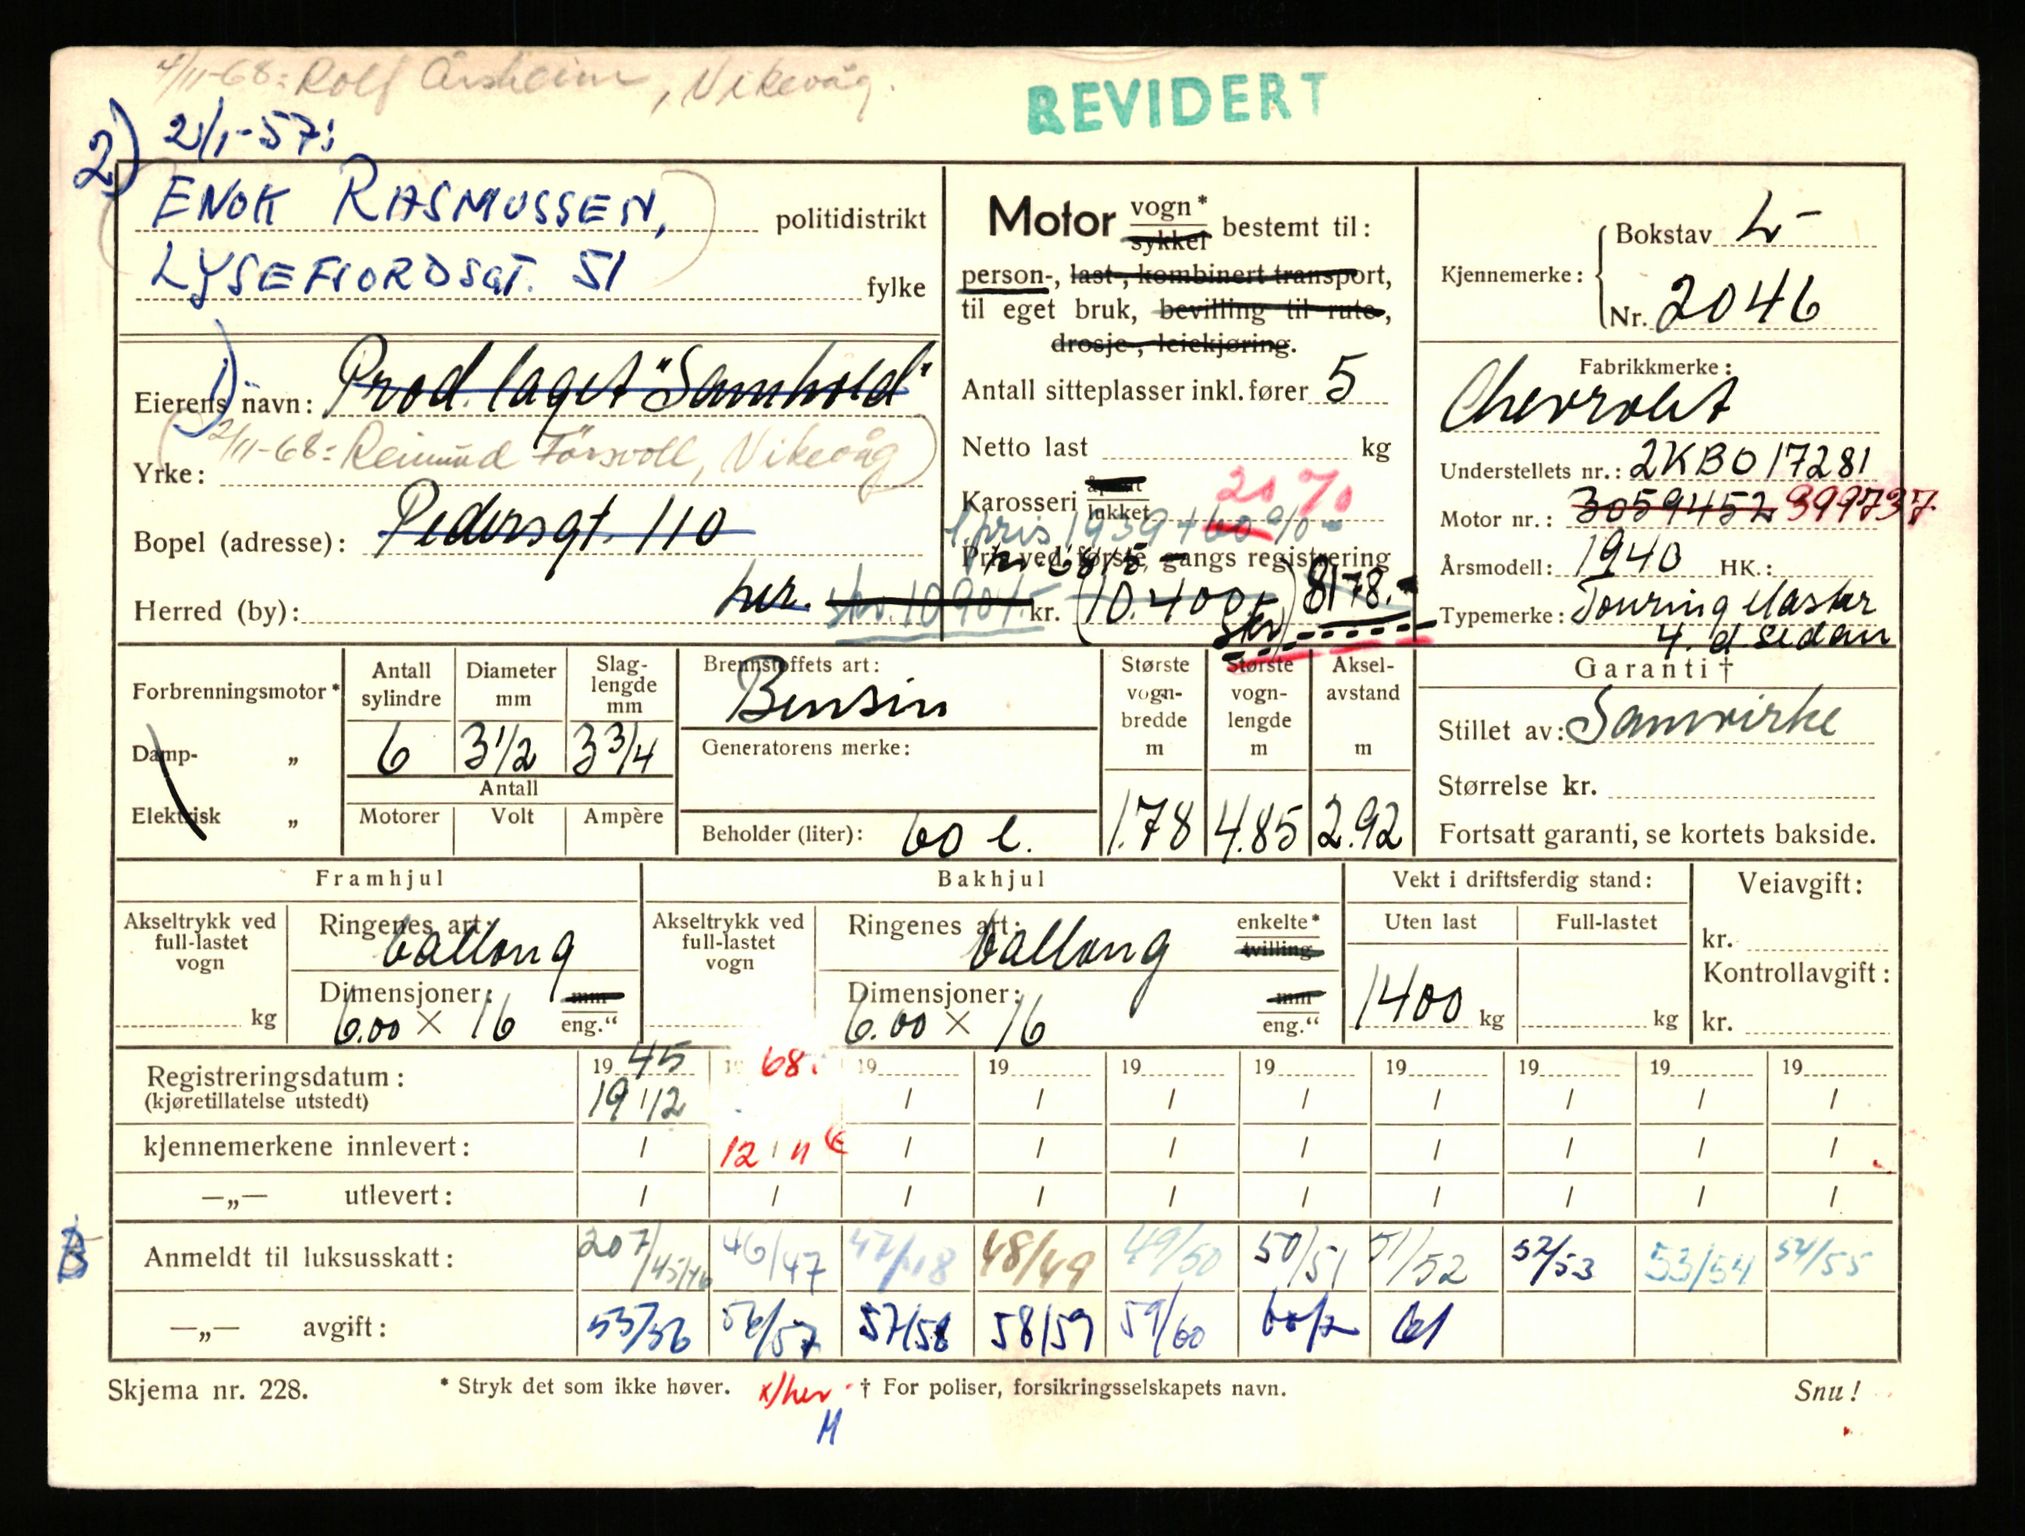 4/11-68: Rolf Årsheim, Vikevåg.
REVIDERT
2) 2/1-57:
ENOK RASMUSSEN, politidistrikt
LYSEFJORDSGT. 51 fylke
1)
Eierens navn: Prod. laget "Samhold"
2/11-68: Reimund Førsvoll, Vikevåg
Yrke:
Bopel (adresse): Pedersgt. 110
Herred (by): her.
Motor vogn* sykkel bestemt til:
person-, last-, kombinert transport,
til eget bruk, bevilling til rute-,
drosje-, leiekjøring.
Antall sitteplasser inkl. fører 5
Netto last kg
Karosseri åpent lukket 20 %
pris 1939 + 60 %
Pris ved første gangs registrering
skr. 10904 kr. (10.400 skr) 8178.-
Kjennemerke: Bokstav L-
Nr. 2046
Fabrikkmerke:
Chevrolet
Understellets nr.: 2KB017281
Motor nr.: 3059452 399737
Årsmodell: 1940 HK.:
Typemerke: Touring Master
4. d. sedan
Forbrenningsmotor*
Damp- „
Elektrisk „
Antall sylindre 6
Diameter mm 3 1/2
Slaglengde mm 3 3/4
Antall
Motorer Volt Ampère
Brennstoffets art:
Bensin
Generatorens merke:
Beholder (liter): 60 l.
Største vognbredde m 1.78
Største vognlengde m 4.85
Akselavstand m 2.92
Garanti †
Stillet av: Samvirke
Størrelse kr.
Fortsatt garanti, se kortets bakside.
Framhjul
Akseltrykk ved full-lastet vogn kg
Ringenes art: ballong
Dimensjoner: mm
6.00 × 16 eng."
Bakhjul
Akseltrykk ved full-lastet vogn
Ringenes art: ballong enkelte* tvilling
Dimensjoner: mm
6.00 × 16 eng."
Vekt i driftsferdig stand:
Uten last Full-lastet
1400 kg kg
Veiavgift:
kr.
Kontrollavgift:
kr.
Registreringsdatum: 1945 68. 19 19 19 19 19 19 19 19
(kjøretillatelse utstedt) 19/12 / / / / / / / /
kjennemerkene innlevert: / 12/11 / / / / / / / /
—„— utlevert: / / / / / / / / / /
B
Anmeldt til luksusskatt: 207/45/46 46/47 47/48 48/49 49/50 50/51 51/52 52/53 53/54 54/55
—„— avgift: 55/56 56/57 57/58 58/59 59/60 60/2 61
Skjema nr. 228. * Stryk det som ikke høver. x) her † For poliser, forsikringsselskapets navn. Snu!
M